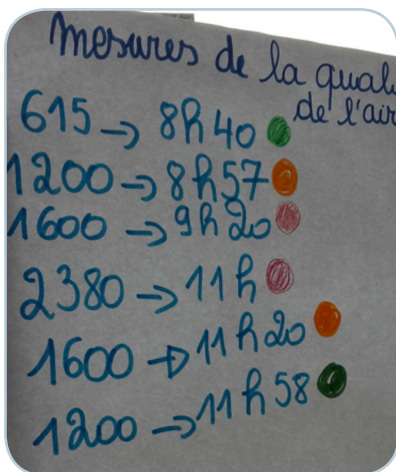 Mesures de la
de l'air
615 → 8h40
1200 → 8h57
1600 → 9h20
2380 → 11h
1600 → 11h20
1200 → 11h58